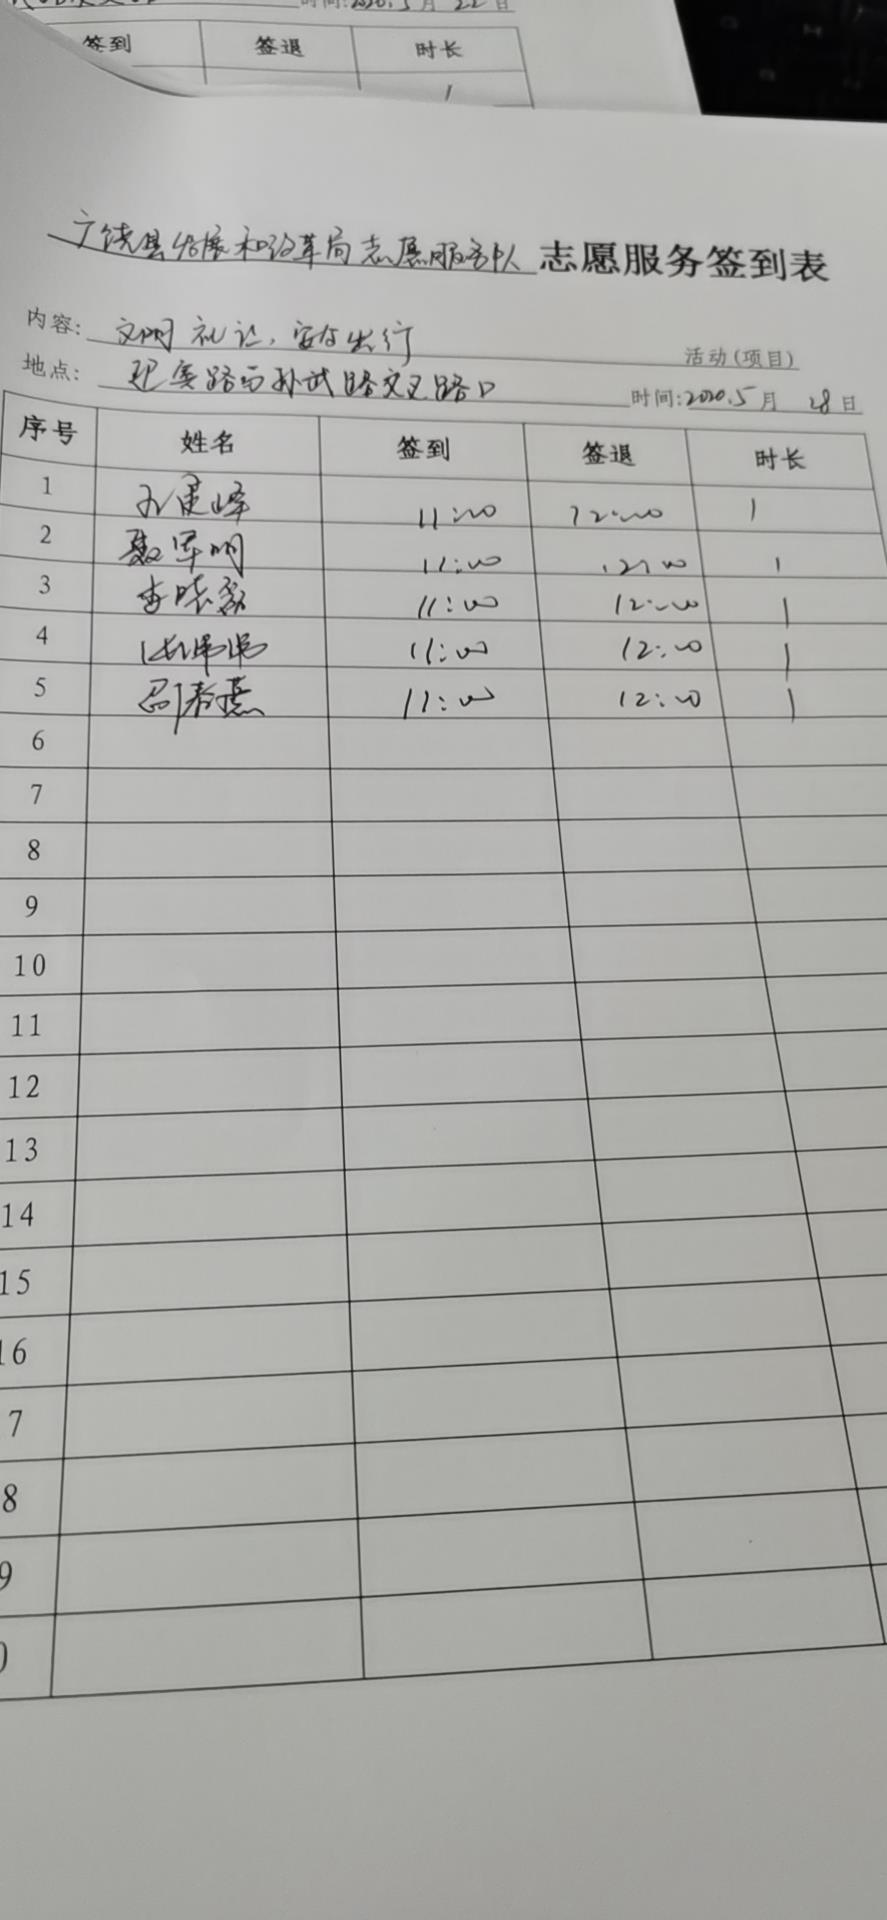 时间:2020.5月22日
签到 签退 时长
1
广饶县发展和改革局志愿服务队 志愿服务签到表
内容: 文明礼让,安全出行 活动(项目)
地点: 路与孙武路交叉路口 时间:2020.5月28日
序号 姓名 签到 签退 时长
1 11:00 12:00 1
2 聂军明 11:00 12:00 1
3 李晓 11:00 12:00 1
4 11:00 12:00 1
5 邵春燕 11:00 12:00 1
6
7
8
9
10
11
12
13
14
15
16
7
8
9
0